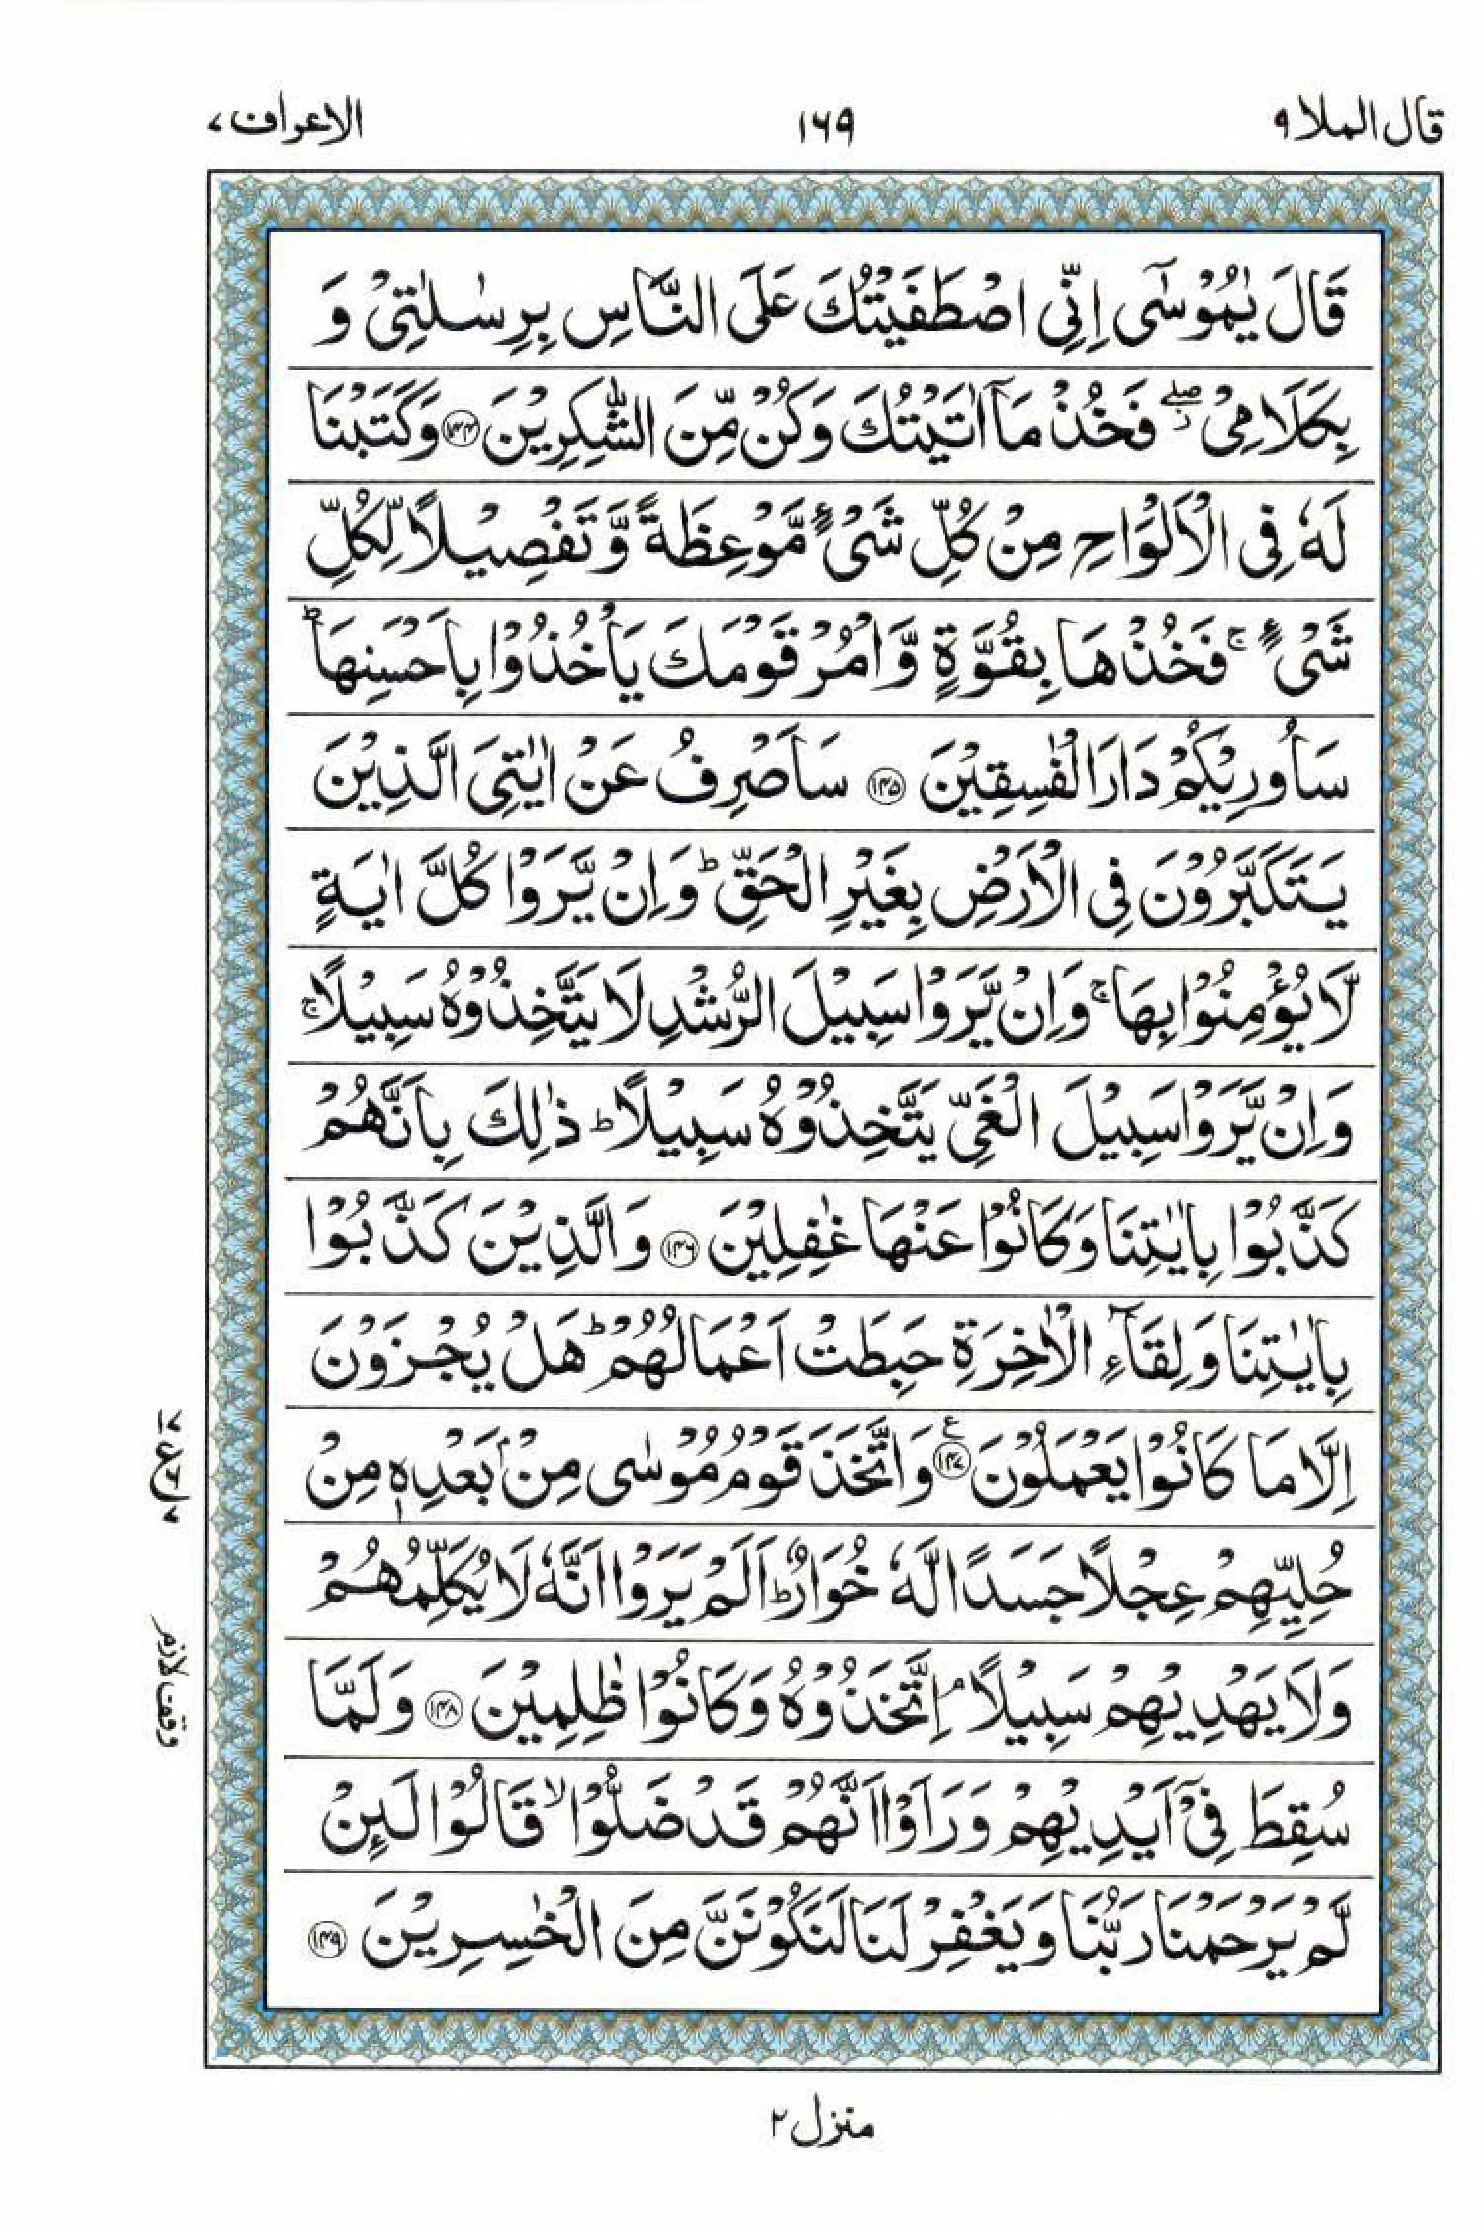 قال الملا ٩
١٦٩
الاعراف ٧
قَالَ یٰمُوْسٰۤی اِنِّی اصْطَفَیْتُكَ عَلَی النَّاسِ بِرِسٰلٰتِیْ وَ
بِكَلَامِیْ ۖ٘ فَخُذْ مَاۤ اٰتَیْتُكَ وَكُنْ مِّنَ الشّٰكِرِیْنَ ﴿۱۴۴﴾ وَكَتَبْنَا
لَهٗ فِی الْاَلْوَاحِ مِنْ كُلِّ شَیْءٍ مَّوْعِظَةً وَّ تَفْصِیْلًا لِّكُلِّ
شَیْءٍ ۚ فَخُذْهَا بِقُوَّةٍ وَّ اْمُرْ قَوْمَكَ یَاْخُذُوْا بِاَحْسَنِهَا ؕ
سَاُورِیْكُمْ دَارَ الْفٰسِقِیْنَ ﴿۱۴۵﴾ سَاَصْرِفُ عَنْ اٰیٰتِیَ الَّذِیْنَ
یَتَكَبَّرُوْنَ فِی الْاَرْضِ بِغَیْرِ الْحَقِّ ؕ وَ اِنْ یَّرَوْا كُلَّ اٰیَةٍ
لَّا یُؤْمِنُوْا بِهَا ۚ وَ اِنْ یَّرَوْا سَبِیْلَ الرُّشْدِ لَا یَتَّخِذُوْهُ سَبِیْلًا ۚ
وَ اِنْ یَّرَوْا سَبِیْلَ الْغَیِّ یَتَّخِذُوْهُ سَبِیْلًا ؕ ذٰلِكَ بِاَنَّهُمْ
كَذَّبُوْا بِاٰیٰتِنَا وَكَانُوْا عَنْهَا غٰفِلِیْنَ ﴿۱۴۶﴾ وَ الَّذِیْنَ كَذَّبُوْا
بِاٰیٰتِنَا وَ لِقَآءِ الْاٰخِرَةِ حَبِطَتْ اَعْمَالُهُمْ ؕ هَلْ یُجْزَوْنَ
اِلَّا مَا كَانُوْا یَعْمَلُوْنَ ﴿۱۴۷﴾ ع وَ اتَّخَذَ قَوْمُ مُوْسٰی مِنْۢ بَعْدِهٖ مِنْ
حُلِیِّهِمْ عِجْلًا جَسَدًا لَّهٗ خُوَارٌ ؕ اَلَمْ یَرَوْا اَنَّهٗ لَا یُكَلِّمُهُمْ
وَلَا یَهْدِیْهِمْ سَبِیْلًا ۘ اِتَّخَذُوْهُ وَكَانُوْا ظٰلِمِیْنَ ﴿۱۴۸﴾ وَلَمَّا
سُقِطَ فِیْۤ اَیْدِیْهِمْ وَرَاَوْا اَنَّهُمْ قَدْ ضَلُّوْا ۙ قَالُوْا لَىِٕنْ
لَّمْ یَرْحَمْنَا رَبُّنَا وَیَغْفِرْ لَنَا لَنَكُوْنَنَّ مِنَ الْخٰسِرِیْنَ ﴿۱۴۹﴾
وقف لازم
منزل ٢